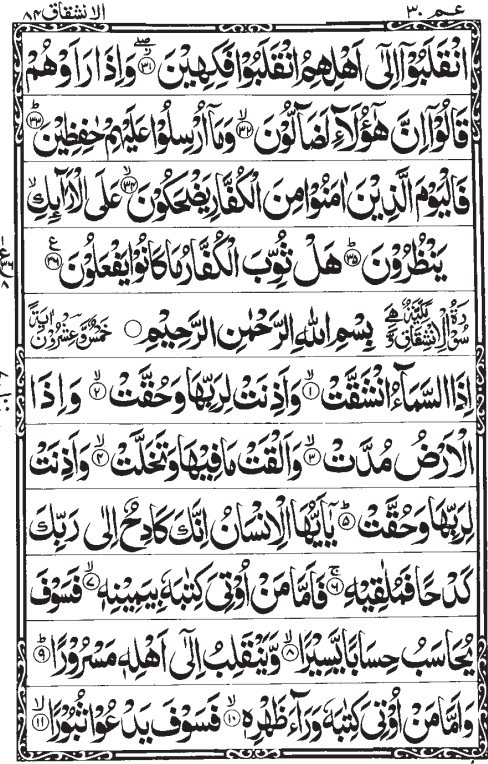 الانشقاق ٨٤
عمّ ٣٠
انْقَلَبُوْۤا اِلٰۤى اَهْلِهِمُ انْقَلَبُوْا فَكِهِیْنَ ﴿۳۱﴾ وَاِذَا رَاَوْهُمْ
قَالُوْۤا اِنَّ هٰۤؤُلَآءِ لَضَآلُّوْنَ ﴿۳۲﴾ وَمَاۤ اُرْسِلُوْا عَلَیْهِمْ حٰفِظِیْنَ ﴿۳۳﴾
فَالْیَوْمَ الَّذِیْنَ اٰمَنُوْا مِنَ الْكُفَّارِ یَضْحَكُوْنَ ﴿۳۴﴾ عَلَی الْاَرَآئِكِ
یَنْظُرُوْنَ ﴿۳۵﴾ هَلْ ثُوِّبَ الْكُفَّارُ مَا كَانُوْا یَفْعَلُوْنَ ﴿۳۶﴾
سُوْرَةُ الْاِنْشِقَاقِ مَكِّیَّةٌ وَّهِیَ بِسْمِ اللهِ الرَّحْمٰنِ الرَّحِیْمِ خَمْسٌ وَّعِشْرُوْنَ اٰیَةً
اِذَا السَّمَآءُ انْشَقَّتْ ﴿۱﴾ وَاَذِنَتْ لِرَبِّهَا وَحُقَّتْ ﴿۲﴾ وَاِذَا
الْاَرْضُ مُدَّتْ ﴿۳﴾ وَاَلْقَتْ مَا فِیْهَا وَتَخَلَّتْ ﴿۴﴾ وَاَذِنَتْ
لِرَبِّهَا وَحُقَّتْ ﴿۵﴾ یٰۤاَیُّهَا الْاِنْسَانُ اِنَّكَ كَادِحٌ اِلٰی رَبِّكَ
كَدْحًا فَمُلٰقِیْهِ ﴿۶﴾ فَاَمَّا مَنْ اُوْتِیَ كِتٰبَهٗ بِیَمِیْنِهٖ ﴿۷﴾ فَسَوْفَ
یُحَاسَبُ حِسَابًا یَّسِیْرًا ﴿۸﴾ وَّیَنْقَلِبُ اِلٰۤى اَهْلِهٖ مَسْرُوْرًا ﴿۹﴾
وَاَمَّا مَنْ اُوْتِیَ كِتٰبَهٗ وَرَآءَ ظَهْرِهٖ ﴿۱۰﴾ فَسَوْفَ یَدْعُوْا ثُبُوْرًا ﴿۱۱﴾